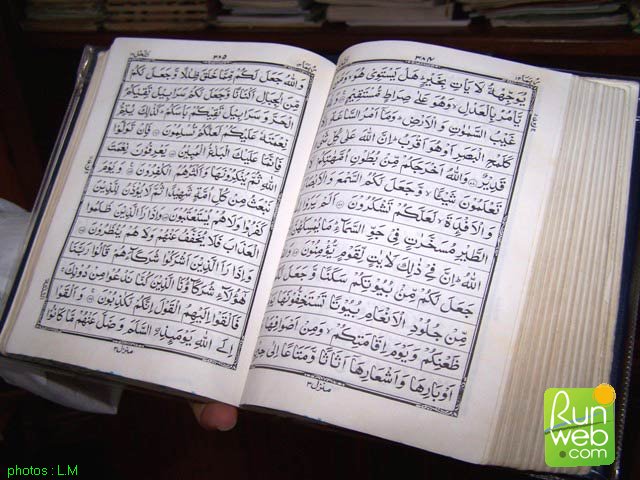 ٣٨٤
يُوَجِّهْهُّ لَا يَاْتِ بِخَيْرٍ هَلْ يَسْتَوِىْ هُوَ
يَّاْمُرُ بِالْعَدْلِ وَهُوَ عَلٰى صِرَاطٍ مُّسْتَقِيْمٍ
غَيْبُ السَّمٰوٰتِ وَالْاَرْضِ وَمَآ اَمْرُ السَّاعَةِ
كَلَمْحِ الْبَصَرِ اَوْ هُوَ اَقْرَبُ اِنَّ اللّٰهَ عَلٰى كُلِّ
قَدِيْرٌ وَاللّٰهُ اَخْرَجَكُمْ مِّنْ بُطُوْنِ اُمَّهٰتِكُمْ
تَعْلَمُوْنَ شَيْئًا وَّجَعَلَ لَكُمُ السَّمْعَ
وَالْاَفْئِدَةَ لَعَلَّكُمْ تَشْكُرُوْنَ اَلَمْ
الطَّيْرِ مُسَخَّرٰتٍ فِىْ جَوِّ السَّمَآءِ مَا يُمْسِكُهُنَّ
اللّٰهُ اِنَّ فِىْ ذٰلِكَ لَاٰيٰتٍ لِّقَوْمٍ يُّؤْمِنُوْنَ
جَعَلَ لَكُمْ مِّنْ بُيُوْتِكُمْ سَكَنًا وَّجَعَلَ
مِّنْ جُلُوْدِ الْاَنْعَامِ بُيُوْتًا تَسْتَخِفُّوْنَهَا
ظَعْنِكُمْ وَيَوْمَ اِقَامَتِكُمْ وَمِنْ اَصْوَافِهَا
اَوْبَارِهَا وَاَشْعَارِهَآ اَثَاثًا وَّمَتَاعًا اِلٰى
منزل ٣
٣٨٥
وَاللّٰهُ جَعَلَ لَكُمْ مِّمَّا خَلَقَ ظِلٰلًا وَّجَعَلَ لَكُمْ
مِّنَ الْجِبَالِ اَكْنَانًا وَّجَعَلَ لَكُمْ سَرَابِيْلَ تَقِيْكُمُ
الْحَرَّ وَسَرَابِيْلَ تَقِيْكُمْ بَاْسَكُمْ كَذٰلِكَ يُتِمُّ
نِعْمَتَهٗ عَلَيْكُمْ لَعَلَّكُمْ تُسْلِمُوْنَ فَاِنْ تَوَلَّوْا
فَاِنَّمَا عَلَيْكَ الْبَلٰغُ الْمُبِيْنُ يَعْرِفُوْنَ نِعْمَتَ
اللّٰهِ ثُمَّ يُنْكِرُوْنَهَا وَاَكْثَرُهُمُ الْكٰفِرُوْنَ وَيَوْمَ
نَبْعَثُ مِنْ كُلِّ اُمَّةٍ شَهِيْدًا ثُمَّ لَا يُؤْذَنُ لِلَّذِيْنَ
كَفَرُوْا وَلَا هُمْ يُسْتَعْتَبُوْنَ وَاِذَا رَاَ الَّذِيْنَ ظَلَمُوا
الْعَذَابَ فَلَا يُخَفَّفُ عَنْهُمْ وَلَا هُمْ يُنْظَرُوْنَ
وَاِذَا رَاَ الَّذِيْنَ اَشْرَكُوْا شُرَكَآءَهُمْ قَالُوْا رَبَّنَا
هٰٓؤُلَآءِ شُرَكَآؤُنَا الَّذِيْنَ كُنَّا نَدْعُوْا مِنْ دُوْنِكَ
فَاَلْقَوْا اِلَيْهِمُ الْقَوْلَ اِنَّكُمْ لَكٰذِبُوْنَ وَاَلْقَوْا
اِلَى اللّٰهِ يَوْمَئِذِ اِۨلسَّلَمَ وَضَلَّ عَنْهُمْ مَّا كَانُوْا
منزل ٣
Run
web
.com
photos : L.M